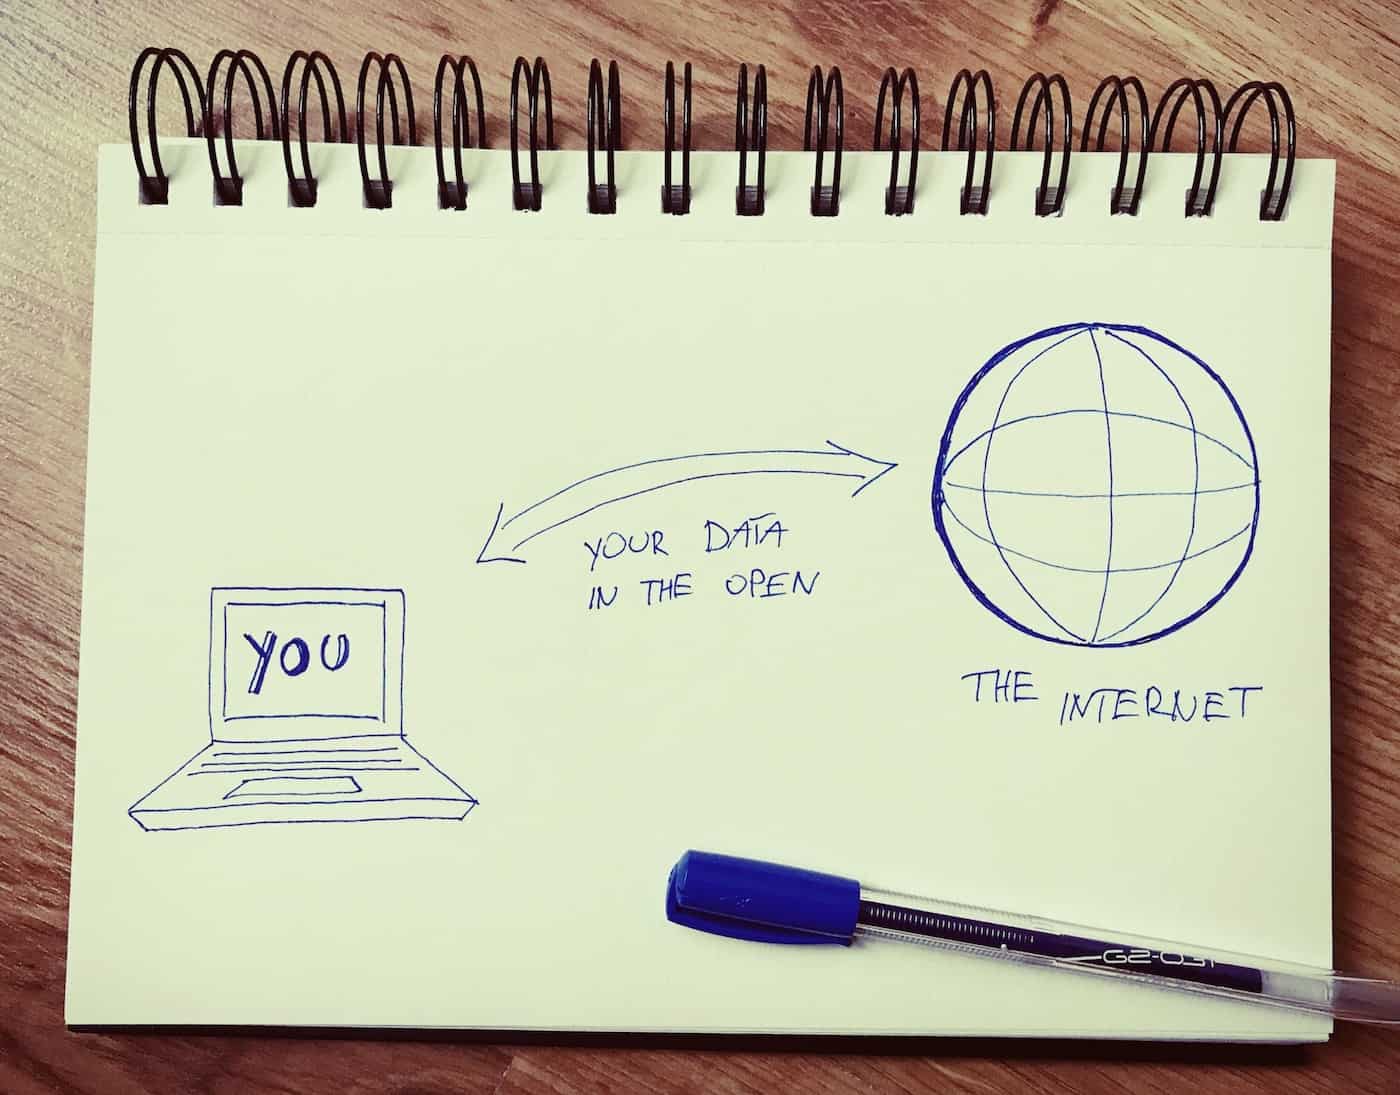 YOUR DATA
IN THE OPEN
YOU
THE INTERNET
G2-037